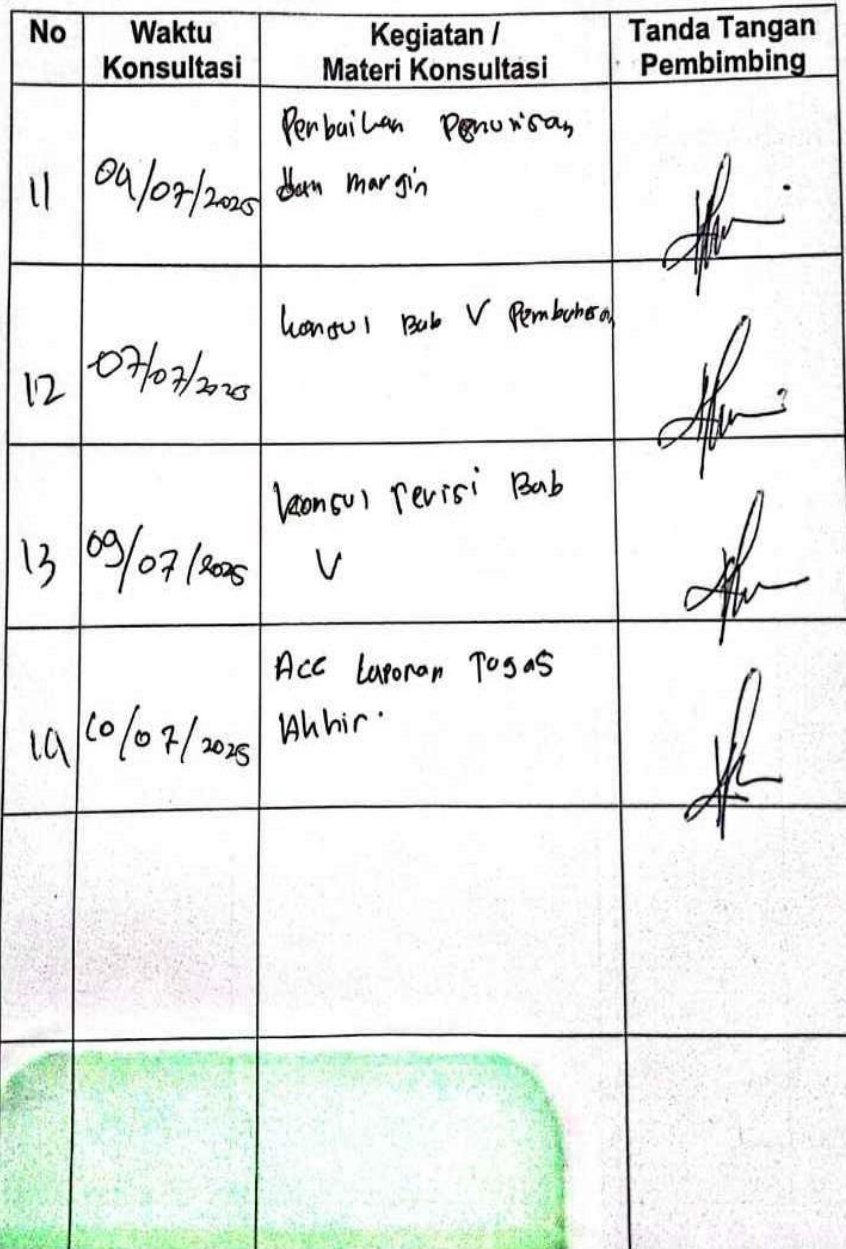 No Waktu Konsultasi Kegiatan / Materi Konsultasi Tanda Tangan Pembimbing
11 04/07/2025 Perbaikan Penulisan
dan margin
12 07/07/2025 konsul Bab V Pembahasan
13 09/07/2025 konsul revisi Bab
V
14 10/07/2025 Acc Laporan Tugas
Akhir.